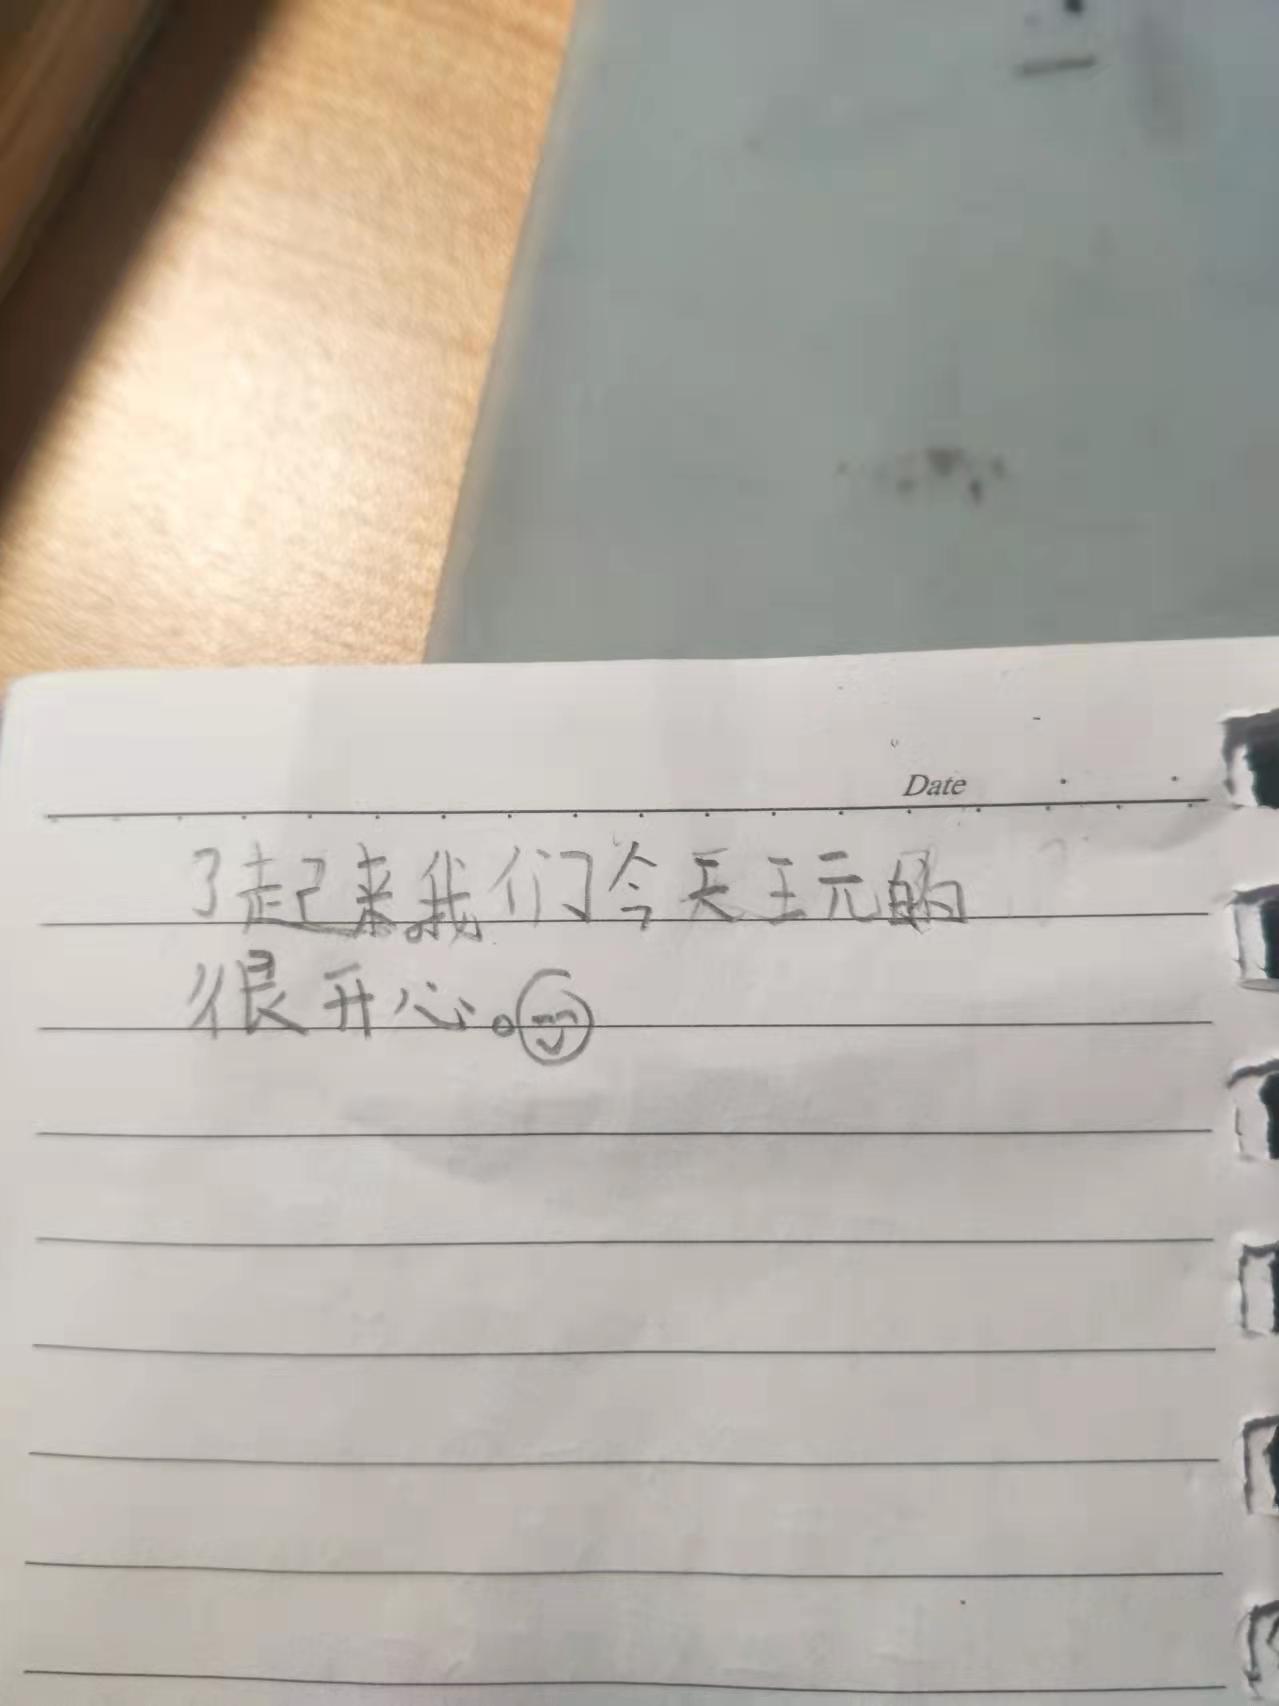 Date
了起来。我们今天王元的
很开心。